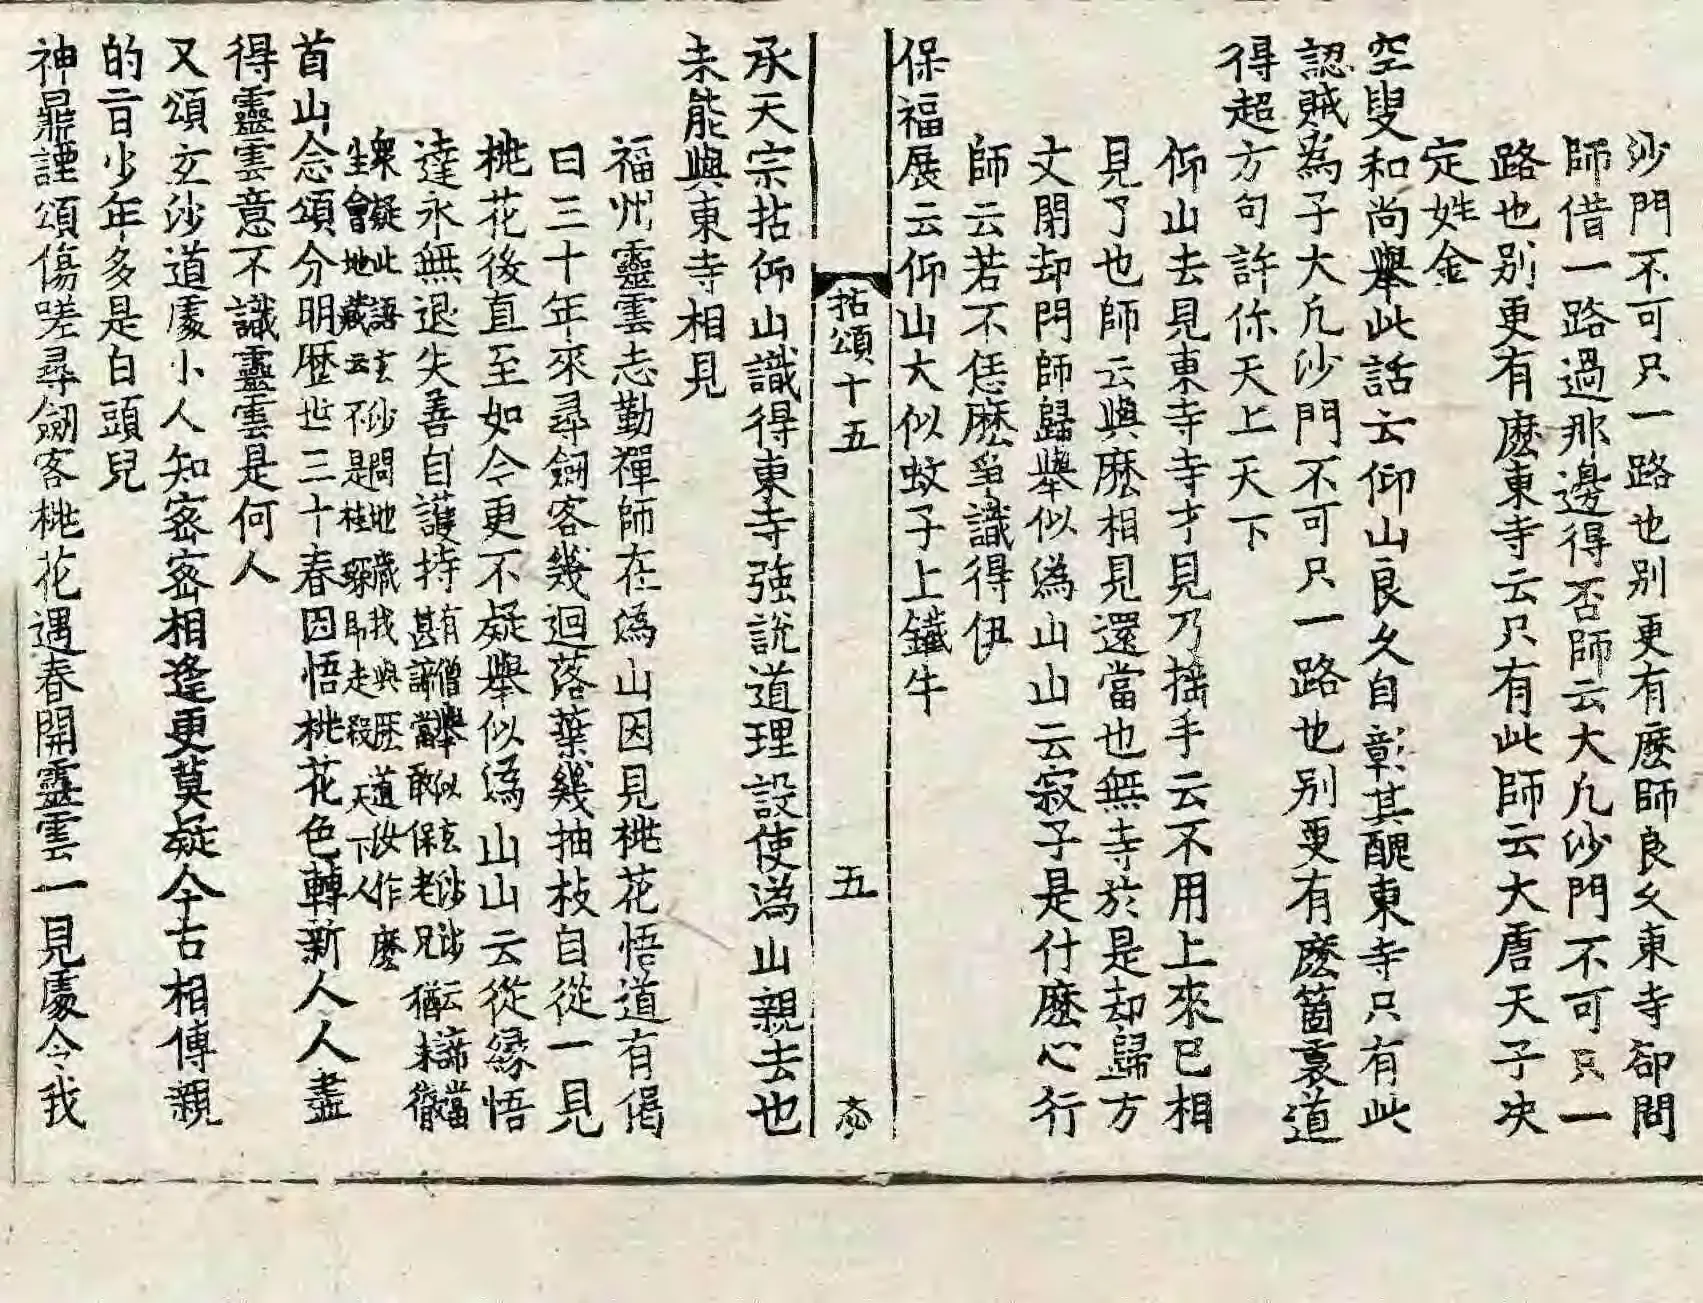 沙門不可只一路也别更有麽師良久東寺卻問
師借一路過那邊得否師云大凡沙門不可只一
路也别更有麽東寺云只有此師云大唐天子决
定姓金
空叟和尚舉此話云仰山良久自彰其醜東寺只有此
認賊為子大凡沙門不可只一路也别更有麽箇裏道
得超方句許你天上天下
仰山去見東寺寺才見乃揺手云不用上來已相
見了也師云與麽相見還當也無寺於是却歸方
丈閉却門師歸舉似溈山山云寂子是什麽心行
師云若不恁麽爭識得伊
保福展云仰山大似蚊子上鐵牛
拈頌十五 五
承天宗拈仰山識得東寺強説道理設使溈山親去也
未能與東寺相見
福州靈雲志勤禪師在溈山因見桃花悟道有偈
曰三十年來尋劔客幾迴落葉幾抽枝自從一見
桃花後直至如今更不疑舉似溈山山云從緣悟
達永無退失善自護持有僧舉似玄沙沙云諦當
甚諦當敢保老兄猶未徹
衆疑此語玄沙問地藏我與麽道汝作麽
生會地藏云不是桂琛即走殺天下人
首山念頌分明歷世三十春因悟桃花色轉新人人盡
得靈雲意不識靈雲是何人
又頌玄沙道處小人知密密相逢更莫疑今古相傳親
的旨少年多是白頭兒
神鼎諲頌傷嗟尋劔客桃花遇春開靈雲一見處令我